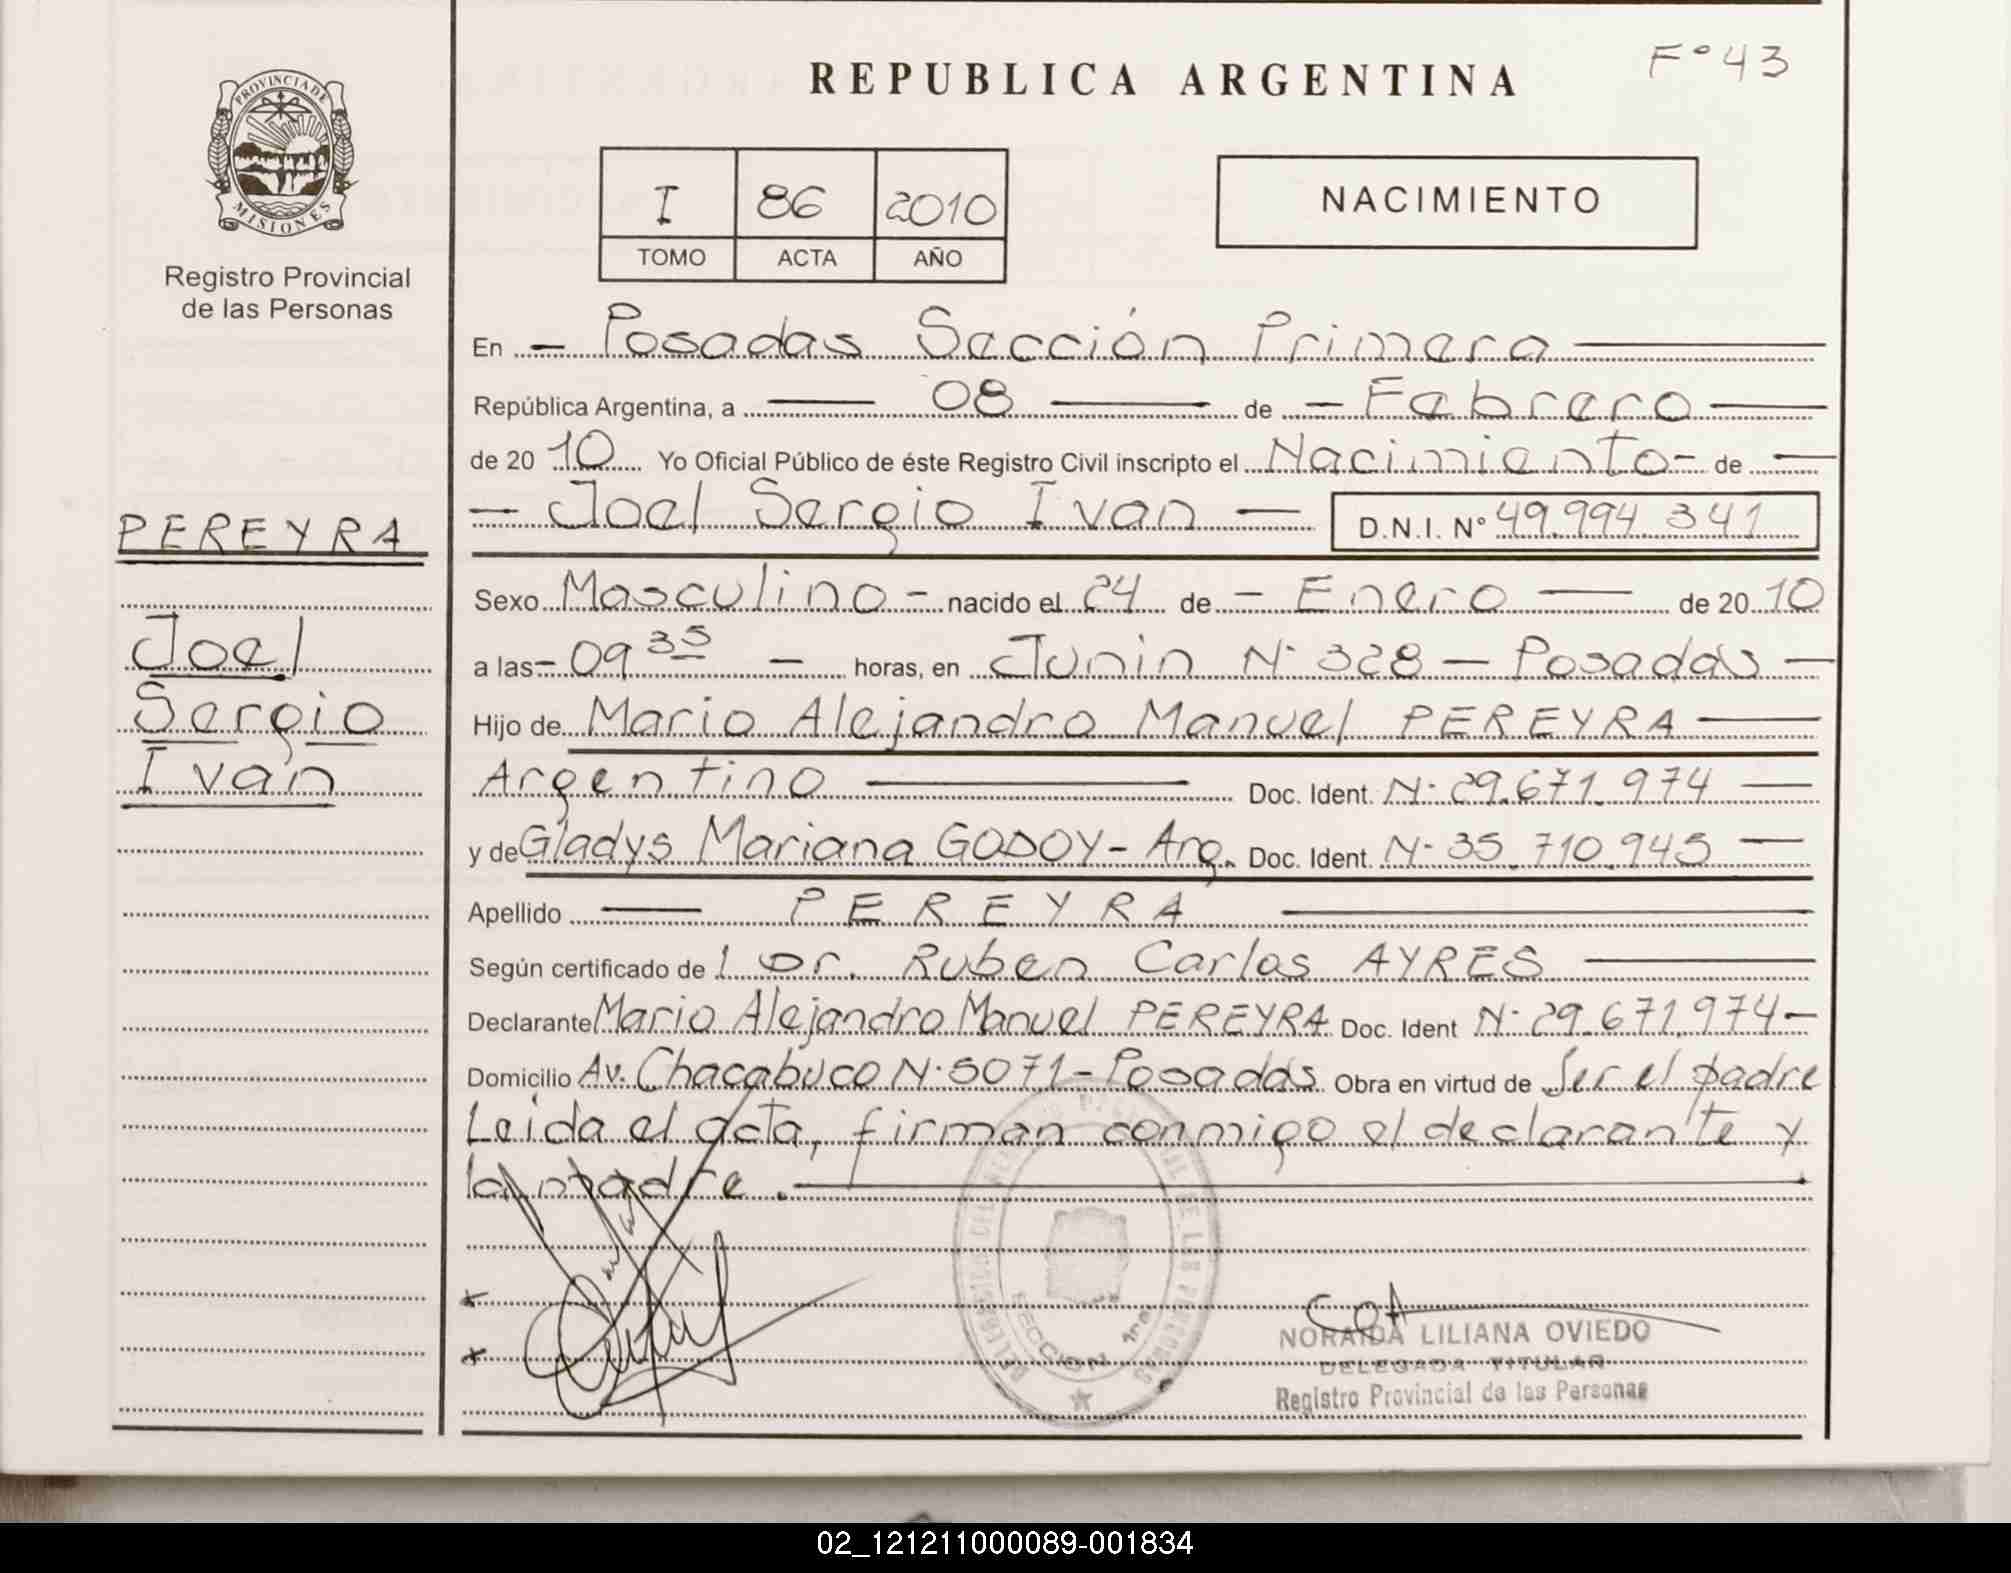 F° 43
REPUBLICA ARGENTINA
PROVINCIA DE
MISIONES
Registro Provincial
de las Personas
I 86 2010
TOMO ACTA AÑO
NACIMIENTO
En - Posadas Sección Primera
República Argentina, a 08 de - Febrero
de 20 10 Yo Oficial Público de éste Registro Civil inscripto el Nacimiento - de
- Joel Sergio Ivan - D.N.I. N° 49.994.341
PEREYRA
Joel
Sergio
Ivan
Sexo Masculino - nacido el 24 de - Enero de 20 10
a las - 09 35 - horas, en Junin N° 328 - Posadas -
Hijo de Mario Alejandro Manuel PEREYRA
Argentino Doc. Ident. N° 29.671.974
y de Gladys Mariana GODOY - Arg. Doc. Ident. N° 35.710.945
Apellido PEREYRA
Según certificado de l Dr. Ruben Carlos AYRES
Declarante Mario Alejandro Manuel PEREYRA Doc. Ident N° 29.671.974 -
Domicilio Av. Chacabuco N° 5071 - Posadas Obra en virtud de Ser el padre
Leida el acta, firman conmigo el declarante y
la madre.
SECCION 1ra
NORAIDA LILIANA OVIEDO
DELEGADA TITULAR
Registro Provincial de las Personas
02_121211000089-001834